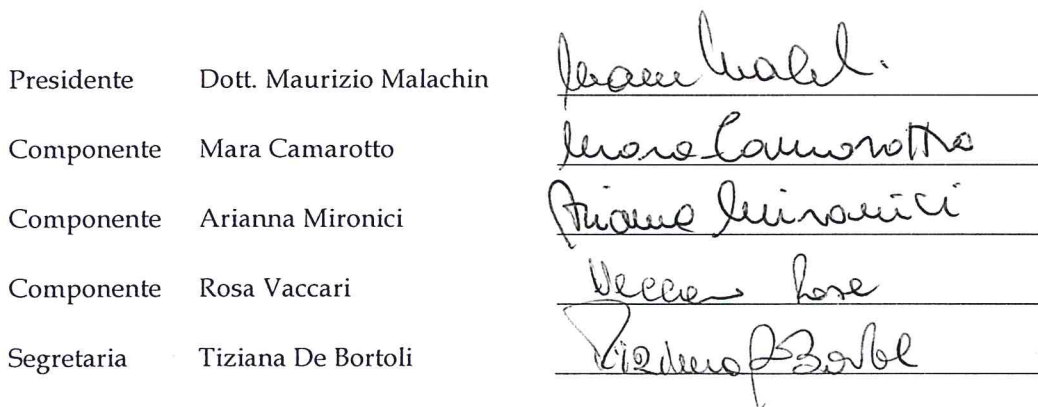 Presidente Dott. Maurizio Malachin
Componente Mara Camarotto Mara Camarotto
Componente Arianna Mironici Arianna Mironici
Componente Rosa Vaccari
Segretaria Tiziana De Bortoli